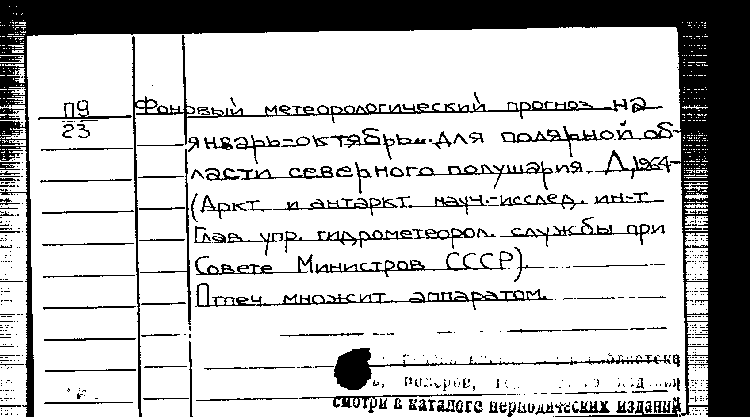 П9
23
Фоновый метеорологический прогноз на
январь-октябрь... для полярной об-
ласти северного полушария. Л., 1964-
(Аркт. и антаркт. науч.-исслед. ин-т
Глав. упр. гидрометеорол. службы при
Совете Министров СССР).
Отпеч. множит. аппаратом.
библиотека
номеров,
смотри в каталоге периодических изданий